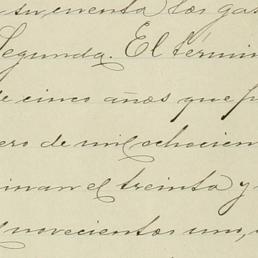 su cuenta los gas
Segunda. El términ
de cinco años que p
ero de mil ochocien
inan el treinta y
l novecientos uno,